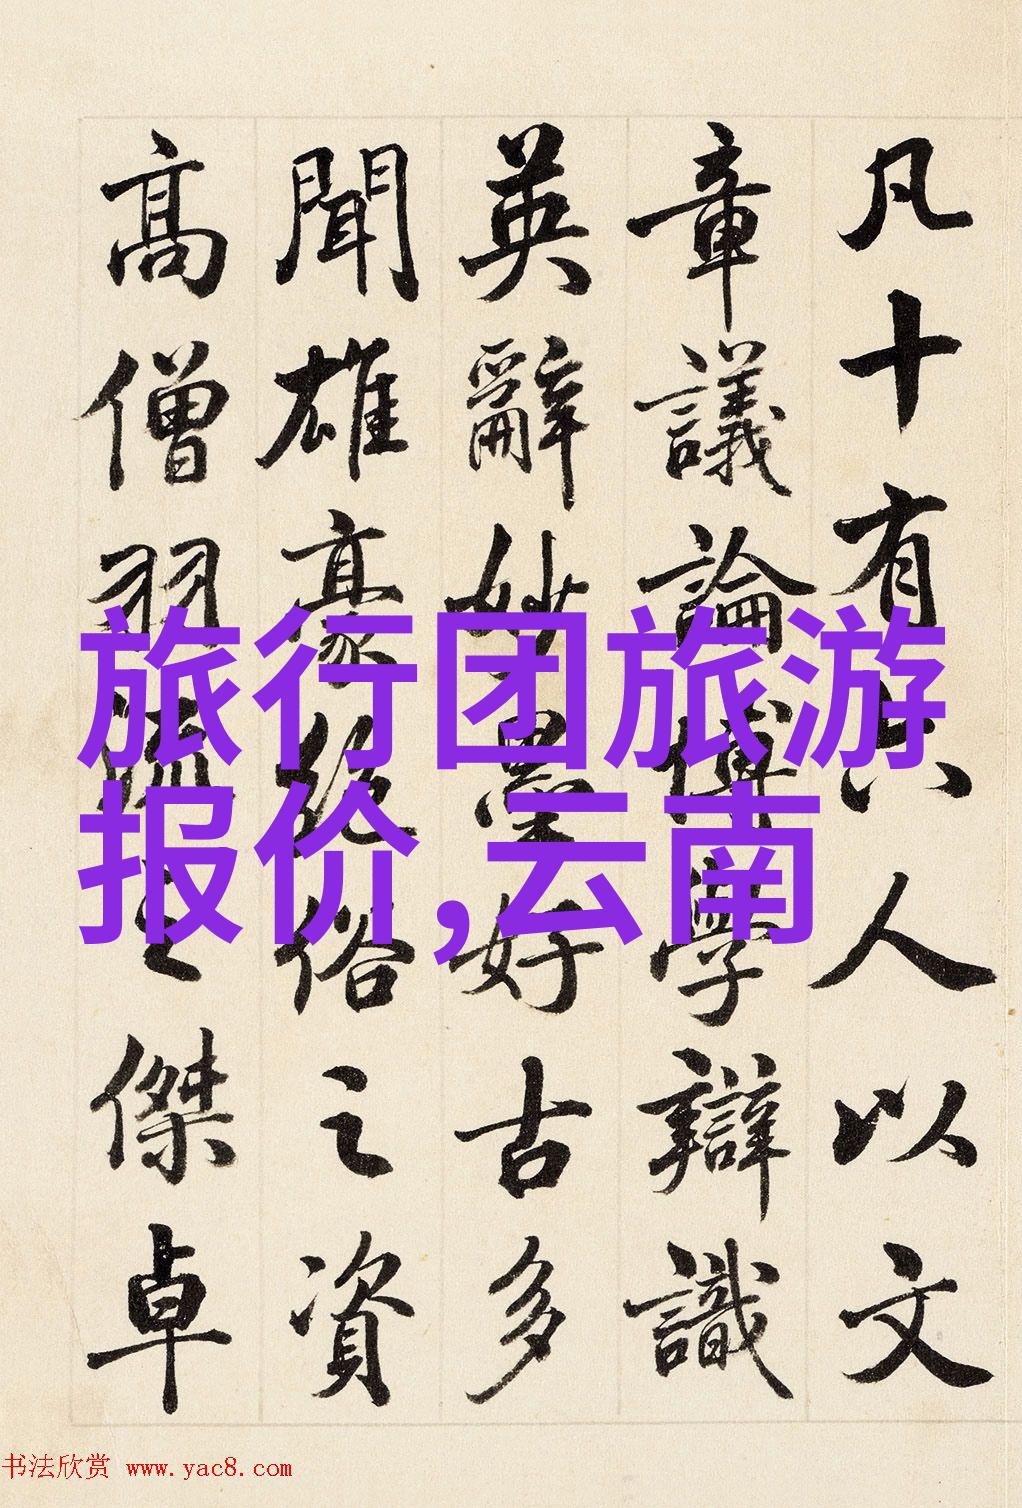 凡十有六人以文
章議論博學辯識
英辭妙墨好古多
聞雄豪絕俗之資
高僧羽流之傑卓
旅行团旅游
报价,云南
书法欣赏 www.yac8.com